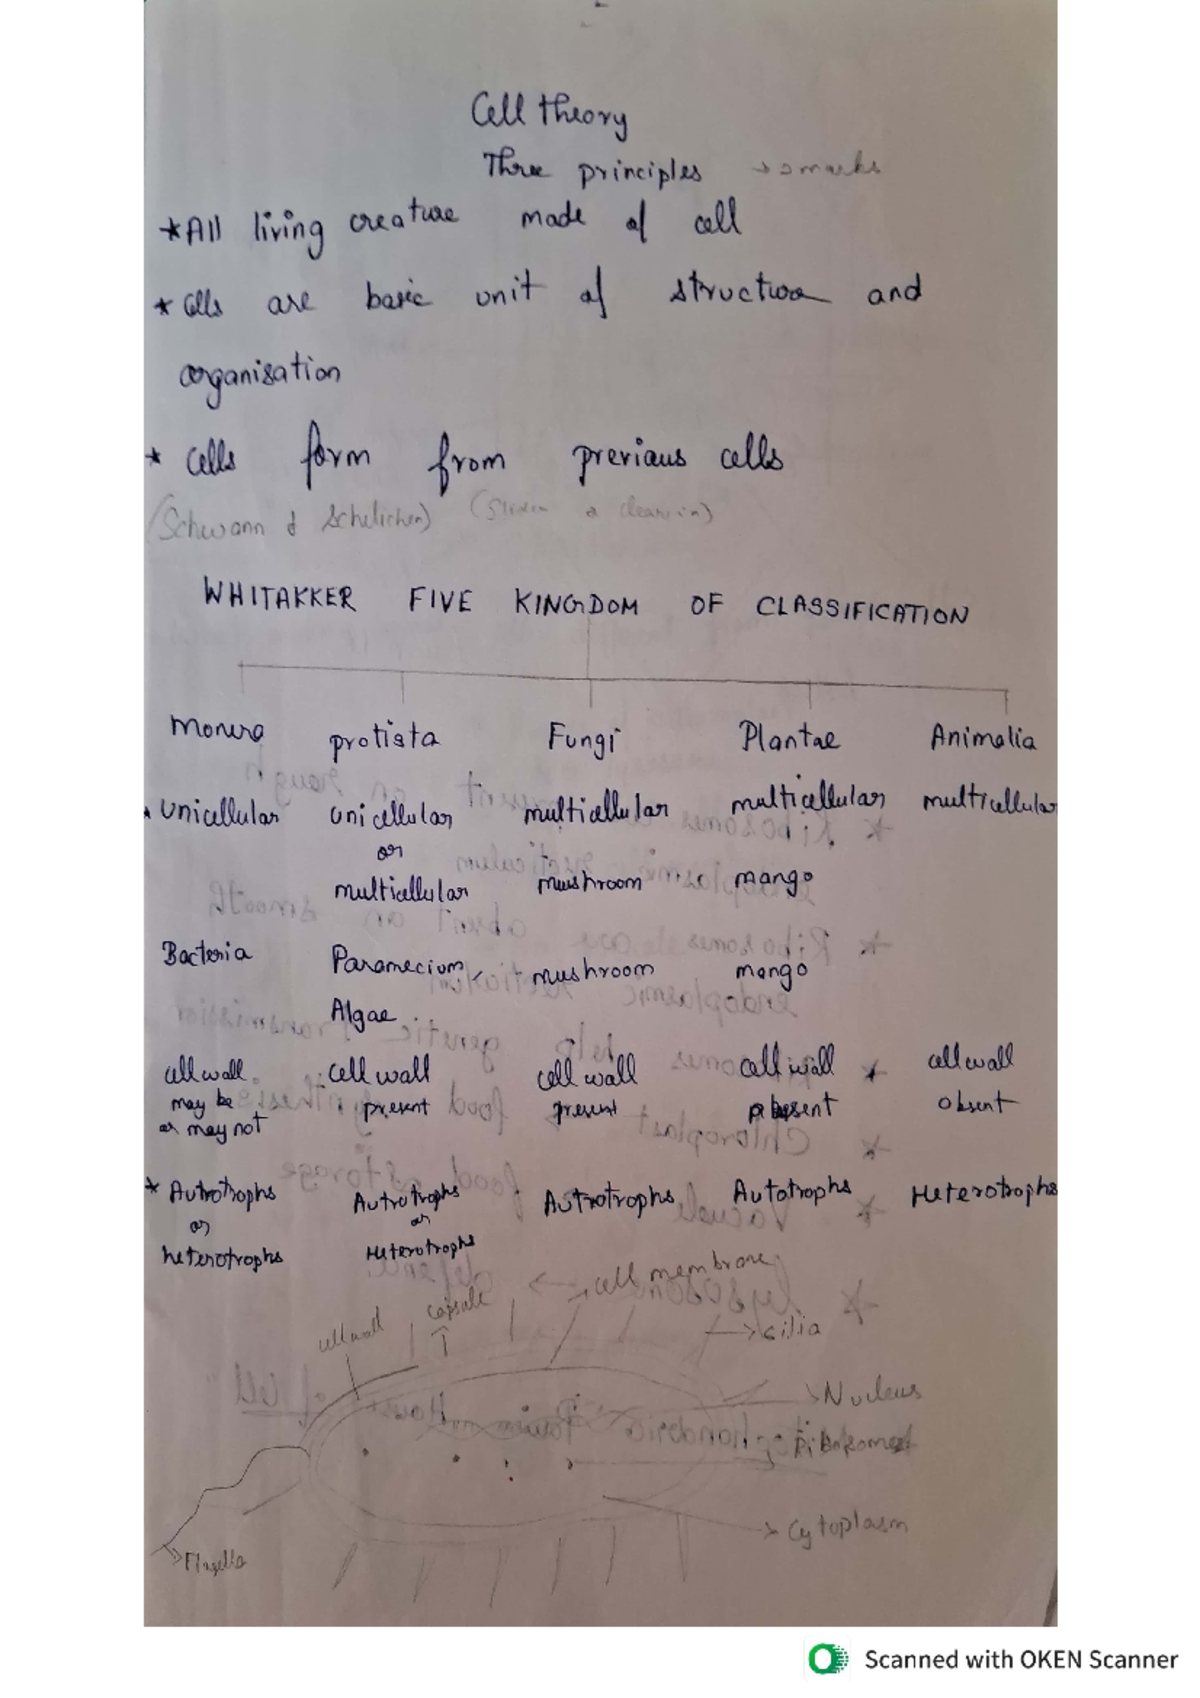 Cell theory
Three principles → 3 marks
* All living creature made of cell
* Cells are basic unit of structure and
organisation
* Cells form from previous cells
(Schwann &
WHITAKKER FIVE KINGDOM OF CLASSIFICATION
Monera protista Fungi Plantae Animalia
Unicellular unicellular multicellular multicellular multicellular
or
multicellular mushroom mango
Bacteria Paramecium mushroom mango
Algae
cell wall cell wall cell wall cell wall * cell wall
may be present present absent
or may not
* Autotrophs Autrotrophs Autrotrophs Autotrophs Heterotrophs
or or
heterotrophs Heterotrophs
cell membrane
cell wall capsule cilia
Nucleus
Ribosomes
Cytoplasm
Flagella
Scanned with OKEN Scanner